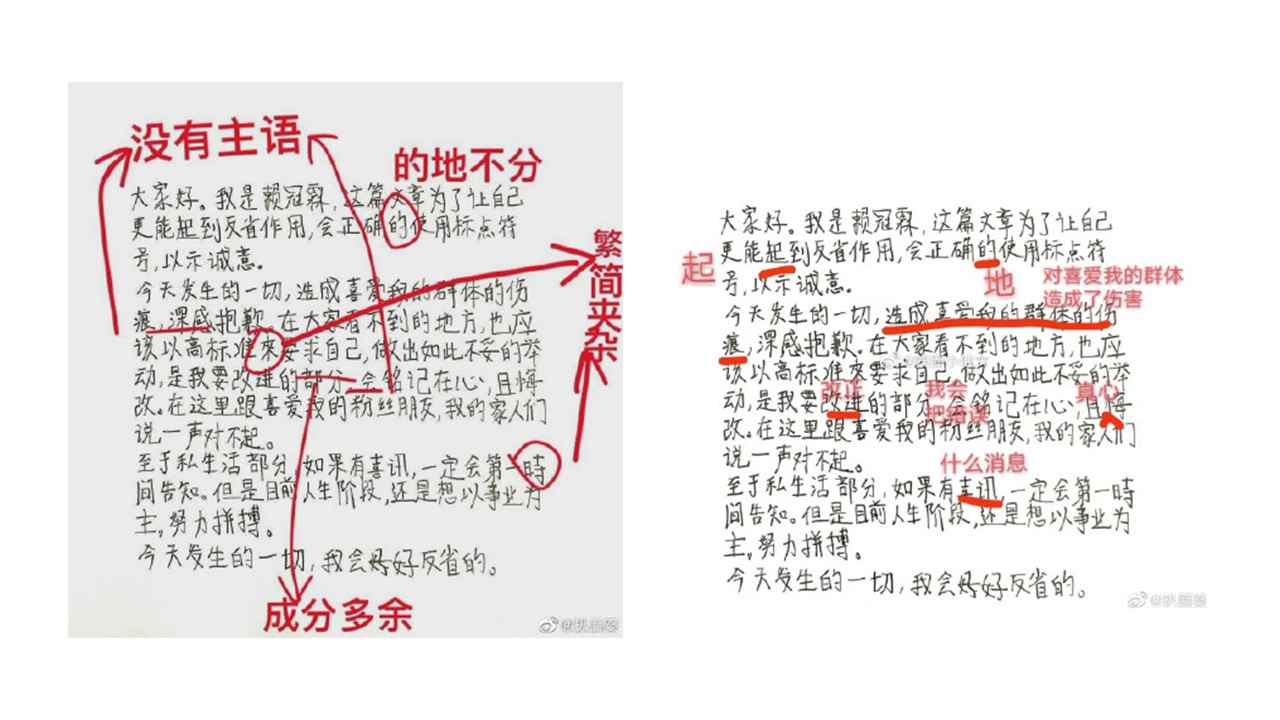 没有主语
的地不分
大家好。我是赖冠霖，这篇文章为了让自己
更能起到反省作用，会正确的使用标点符
号，以示诚意。
今天发生的一切，造成喜爱我的群体的伤
痕，深感抱歉。在大家看不到的地方，也应
该以高标准來要求自己，做出如此不妥的举
动，是我要改进的部分，会铭记在心，且悔
改。在这里跟喜爱我的粉丝朋友，我的家人们
说一声对不起。
至于私生活部分，如果有喜讯，一定会第一時
间告知。但是目前人生阶段，还是想以事业为
主，努力拼搏。
今天发生的一切，我会好好反省的。
繁
简
夹
杂
成分多余
@扒圈婆
大家好。我是赖冠霖，这篇文章为了让自己
更能起到反省作用，会正确的使用标点符
号，以示诚意。
起
地
对喜爱我的群体
造成了伤害
今天发生的一切，造成喜爱我的群体的伤
痕，深感抱歉。在大家看不到的地方，也应
该以高标准來要求自己，做出如此不妥的举
改正
我会
把错误
真心
动，是我要改进的部分，会铭记在心，且悔
改。在这里跟喜爱我的粉丝朋友，我的家人们
说一声对不起。
什么消息
至于私生活部分，如果有喜讯，一定会第一時
间告知。但是目前人生阶段，还是想以事业为
主，努力拼搏。
今天发生的一切，我会好好反省的。
@扒圈婆